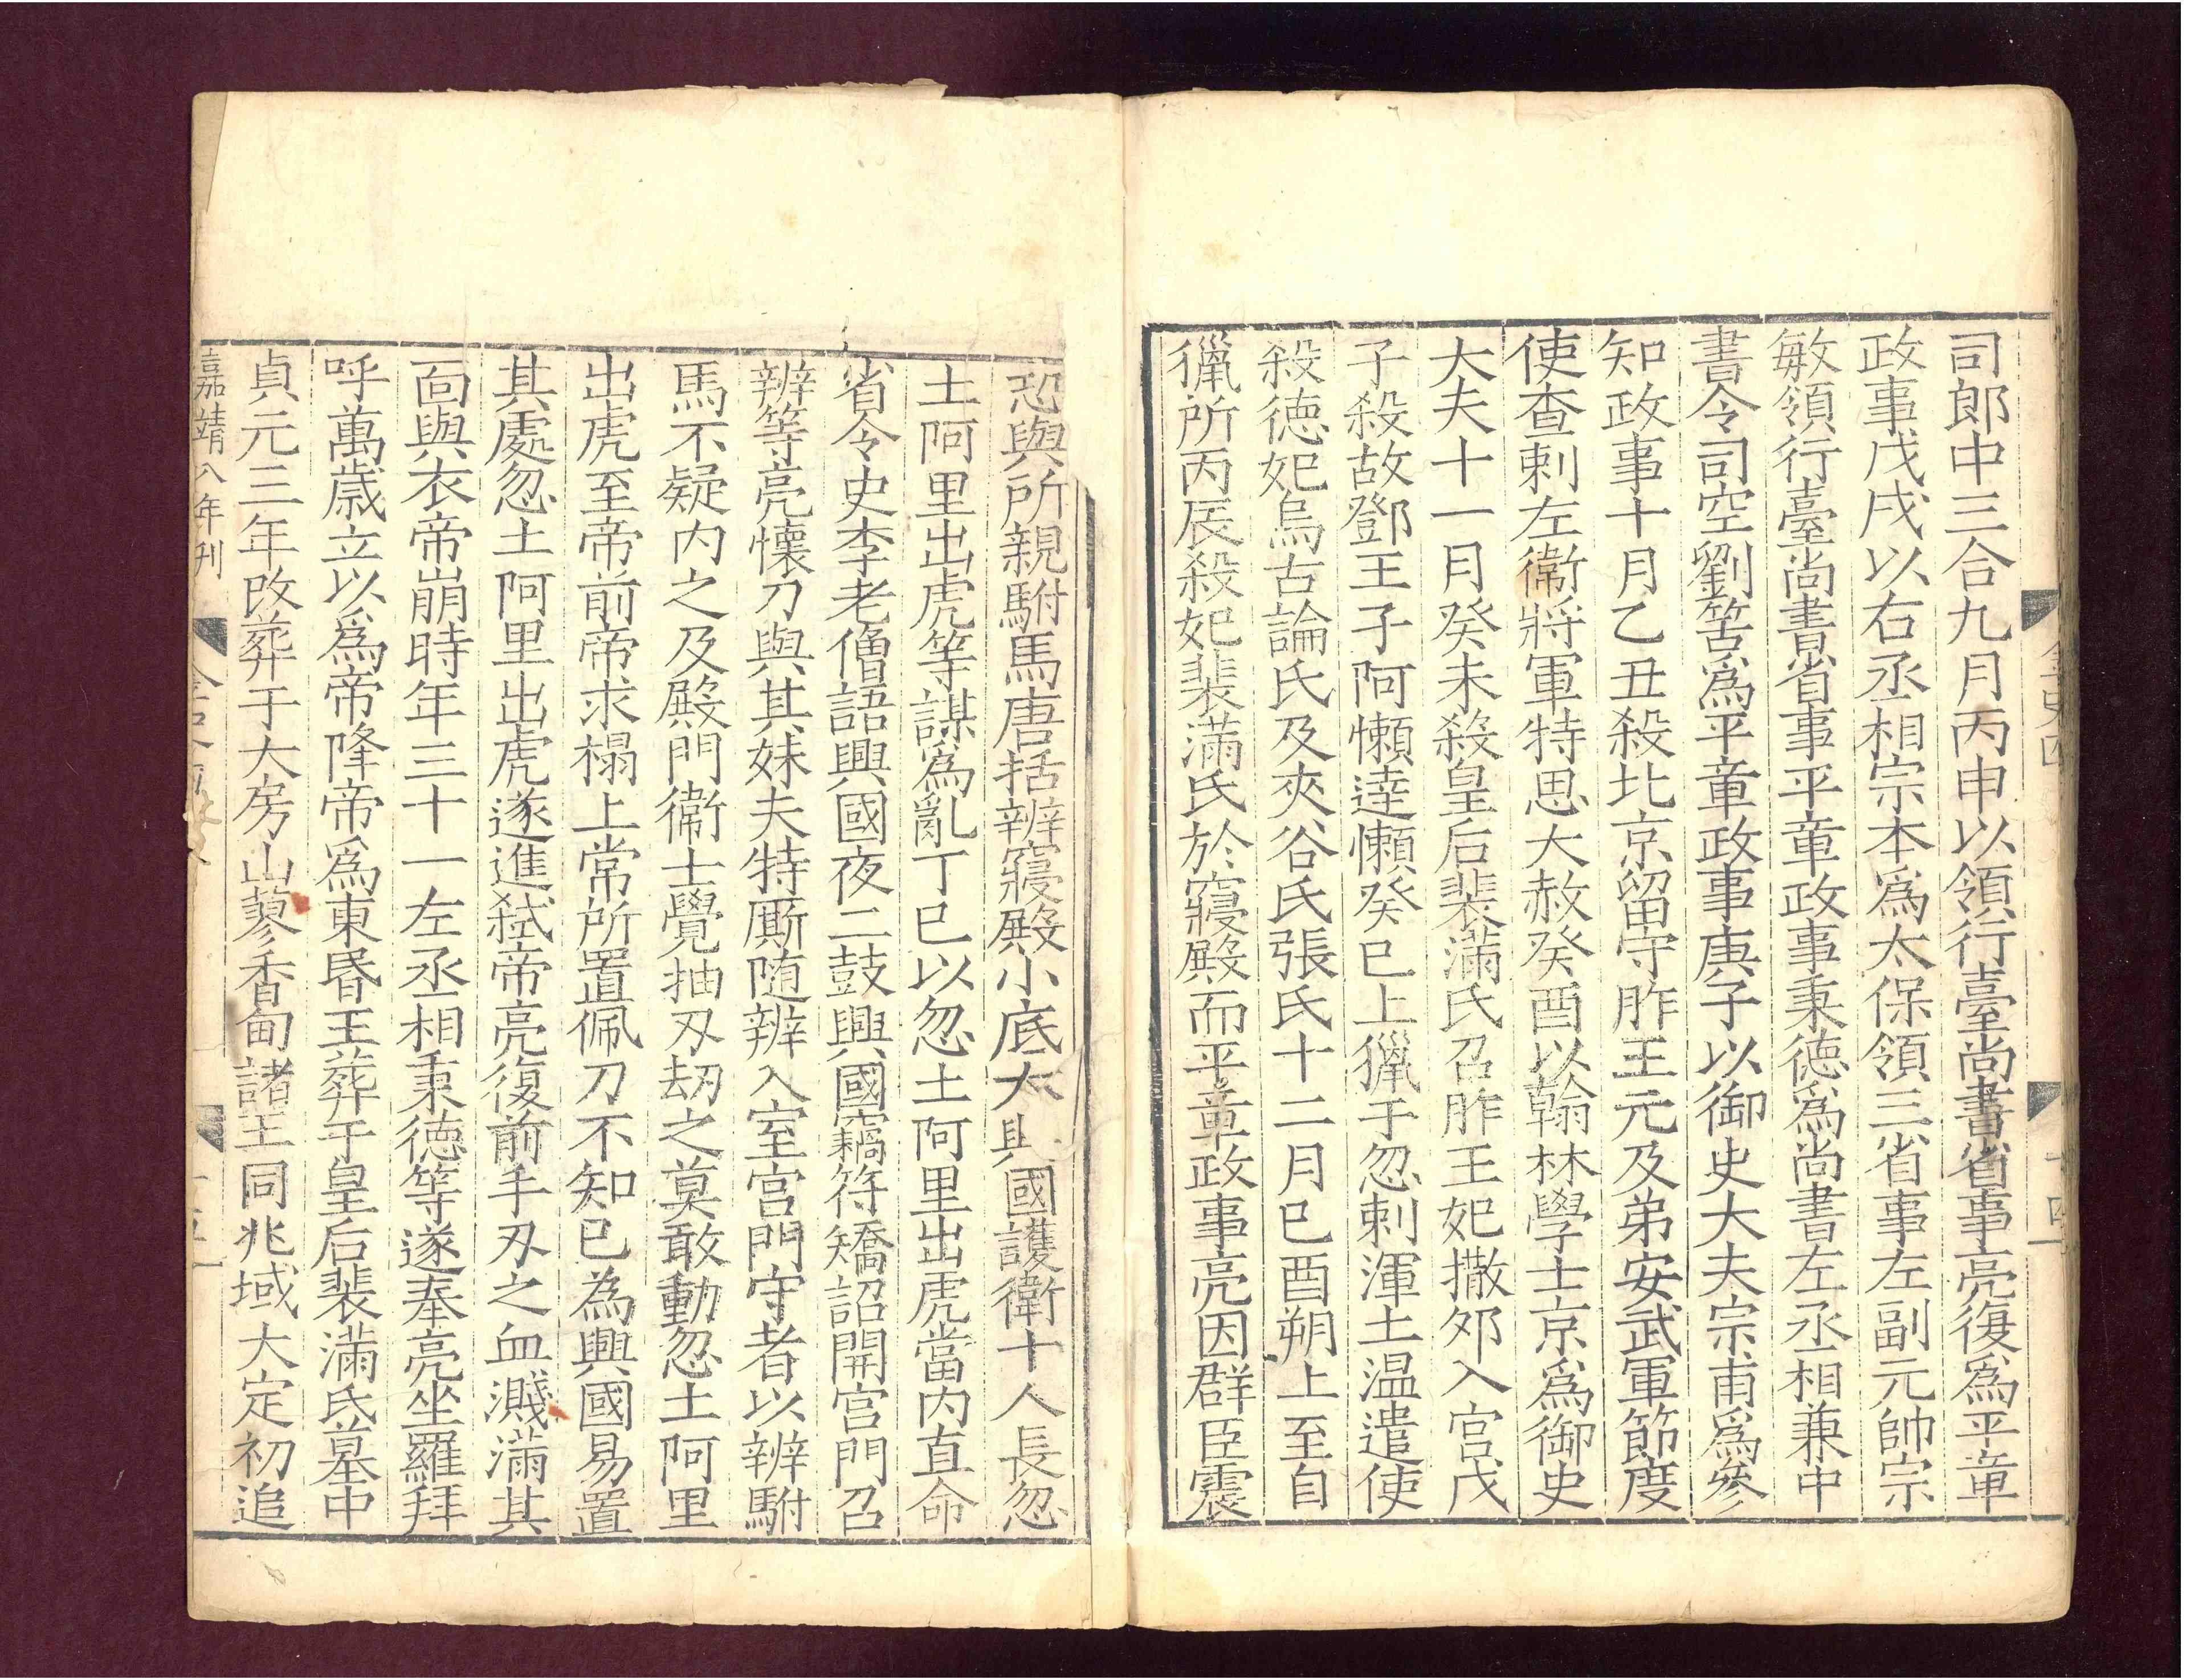 金史四
十四
司郎中三合九月丙申以領行臺尚書省事亮復爲平章
政事戊戌以右丞相宗本爲太保領三省事左副元帥宗
敏領行臺尚書省事平章政事秉德爲尚書左丞相兼中
書令司空劉筈爲平章政事庚子以御史大夫宗甫爲參
知政事十月乙丑殺北京留守胙王元及弟安武軍節度
使查剌左衛將軍特思大赦癸酉以翰林學士京爲御史
大夫十一月癸未殺皇后裴滿氏召胙王妃撒夘入宮戊
子殺故鄧王子阿懶達懶癸巳上獵于忽剌渾土温遣使
殺德妃烏古論氏及夾谷氏張氏十二月巳酉朔上至自
獵所丙辰殺妃裴滿氏於寢殿而平章政事亮因群臣震
恐與所親駙馬唐括辨寢殿小底大興國護衛十人長忽
土阿里出虎等謀爲亂丁巳以忽土阿里出虎當内直命
省令史李老僧語興國夜二鼓興國竊符矯詔開宮門召
辨等亮懷刀與其妹夫特厮隨辨入至宮門守者以辨駙
馬不疑内之及殿門衛士覺抽刃刼之莫敢動忽土阿里
出虎至帝前帝求榻上常所置佩刀不知已為興國易置
其處忽土阿里出虎遂進弑帝亮復前手刃之血濺滿其
面與衣帝崩時年三十一左丞相秉德等遂奉亮坐羅拜
呼萬歲立以爲帝降帝爲東昏王葬于皇后裴滿氏墓中
貞元三年改葬于大房山蓼香甸諸王同兆域大定初追
嘉靖八年刊